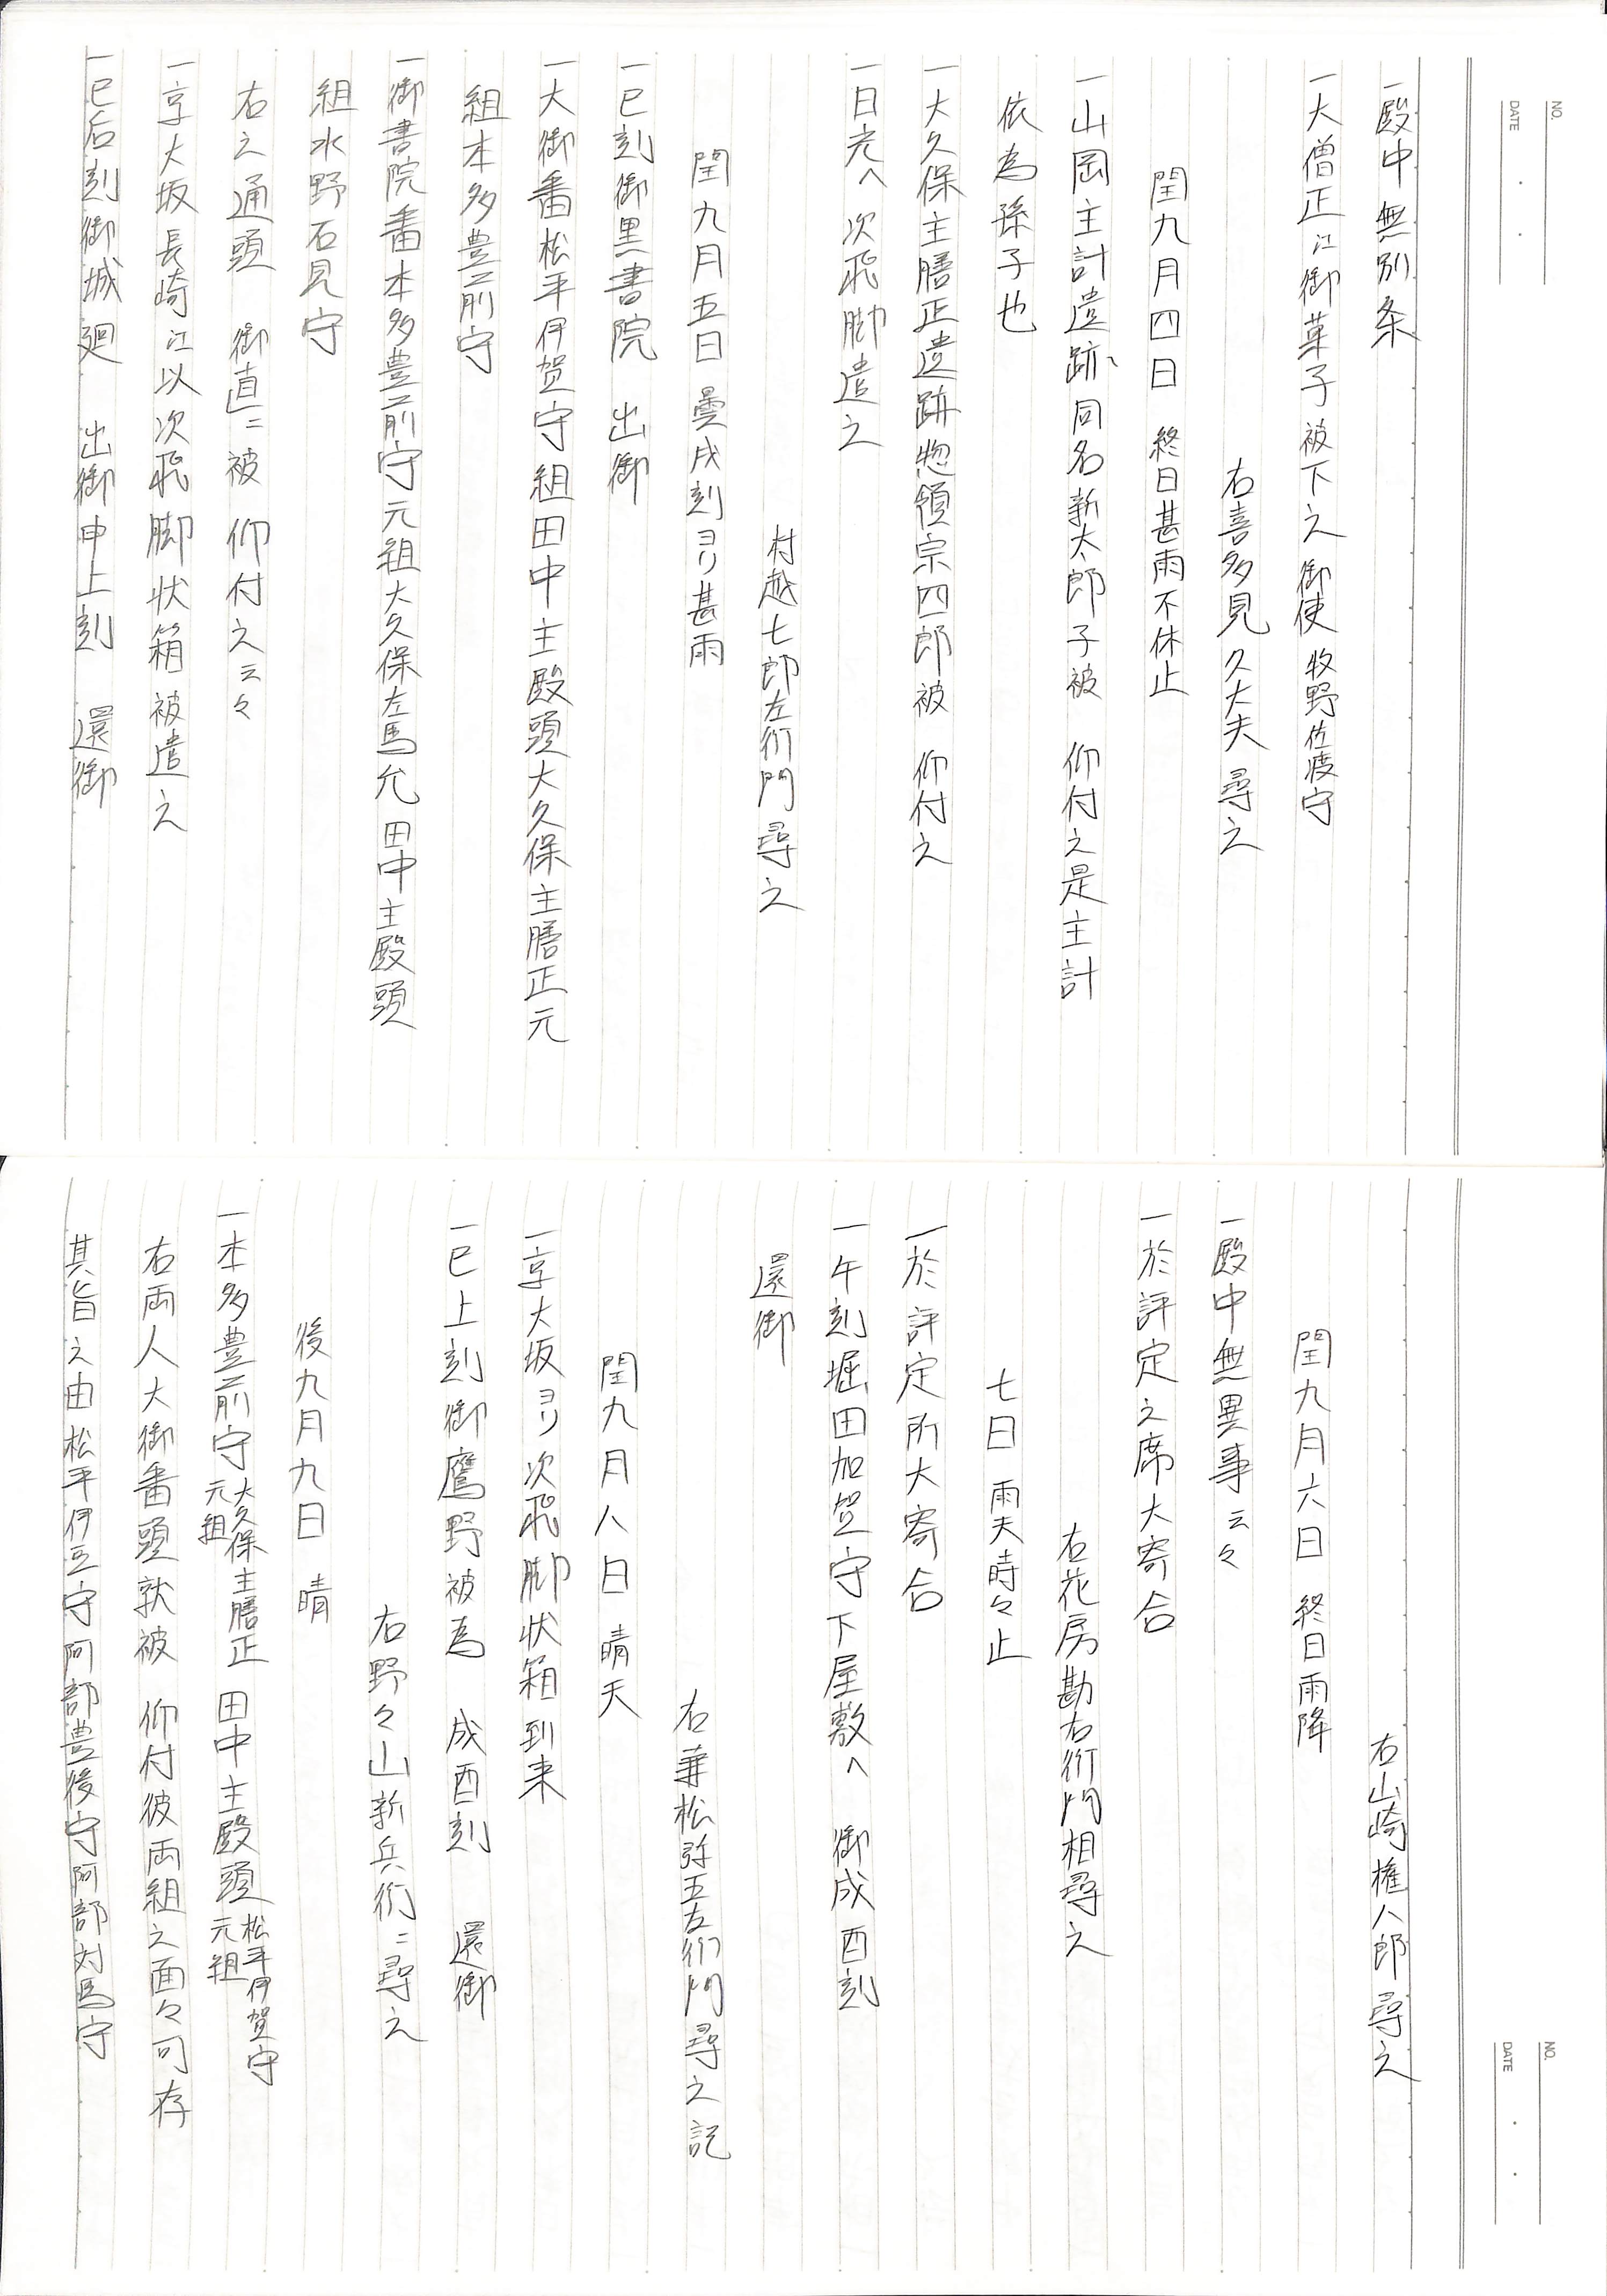 NO.
DATE
一殿中無別条
一大僧正江御菓子被下之御使牧野佐渡守
右喜多見久大夫尋之
閏九月四日 終日甚雨不休止
一山岡主計遺跡同名新太郎子被 仰付之是主計
依為孫子也
一大久保主膳正遺跡惣領宗四郎被 仰付之
一日光へ次飛脚遣之
村越七郎左衛門尋之
閏九月五日 曇戌刻ヨリ甚雨
一巳刻御黒書院 出御
一大御番松平伊賀守組田中主殿頭大久保主膳正元
組本多豊前守
一御書院番本多豊前守元組大久保左馬允田中主殿頭
組水野石見守
右之通頭 御直ニ被 仰付之云々
一京大坂長崎江以次飛脚状箱被遣之
一巳后刻御城廻 出御申上刻 還御
NO.
DATE
右山崎権八郎尋之
閏九月六日 終日雨降
一殿中無異事云々
一於評定之席大寄合
右花房勘右衛門相尋之
七日 雨天時々止
一於評定所大寄合
一午刻堀田加賀守下屋敷へ 御成酉刻
還御
右兼松弥五左衛門尋之記
閏九月八日 晴天
一京大坂ヨリ次飛脚状箱到来
一巳上刻御鷹野被為 成酉刻 還御
右野々山新兵衛ニ尋之
後九月九日 晴
一本多豊前守大久保主膳正元組 田中主殿頭松平伊賀守元組
右両人大御番頭就被 仰付彼両組之面々可存
其旨之由松平伊豆守阿部豊後守阿部対馬守